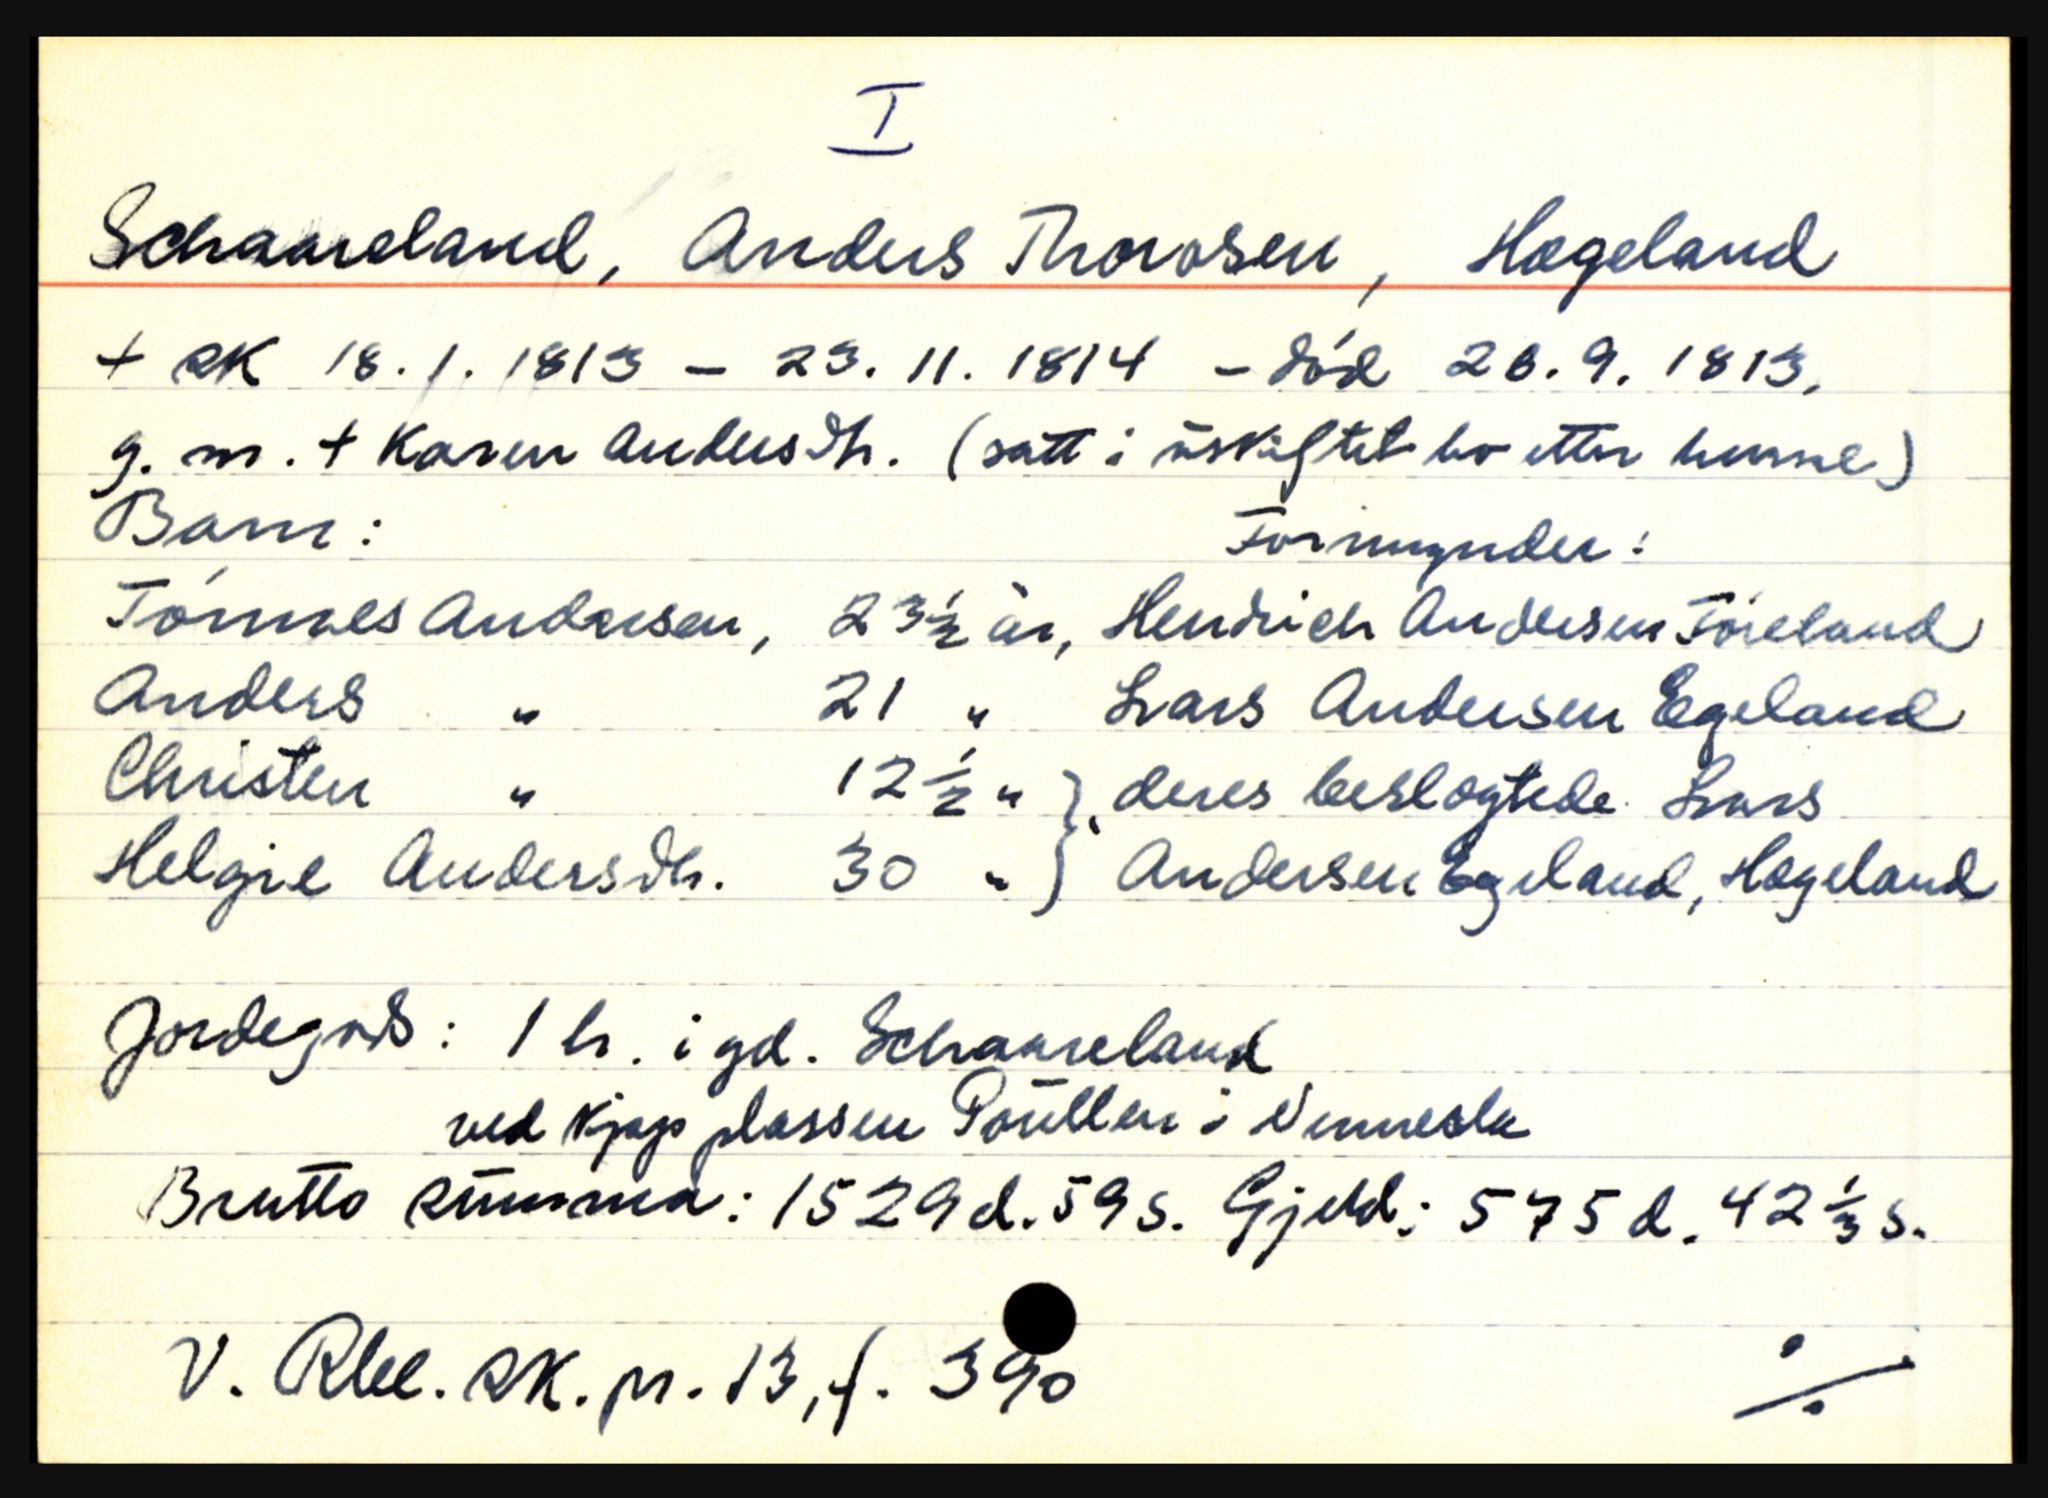 I
Schaareland, Anders Thorosen, Hægeland
+ SK 18.1.1813 - 23.11.1814 - død 26.9.1813,
g. m. + Karen Andersdtr. (satt i uskiftet bo etter henne)
Barn:
Formynder:
Tønnes Andersen, 23½ år, Hendrich Andersen Føreland
Anders " 21 " Lars Andersen Egeland
Christen " 12½ " } deres beslægtede Lars
Helgie Andersdtr. 30 " } Andersen Egeland, Hægeland
Jordegods: 1 h. i gd. Schaareland
ved kjøp plassen Poullen i Vennesla
Brutto summa: 1529 d. 59 s. Gjeld: 575 d. 42 ⅓ s.
V. Rbl. SK. pr. 13, f. 390
./.